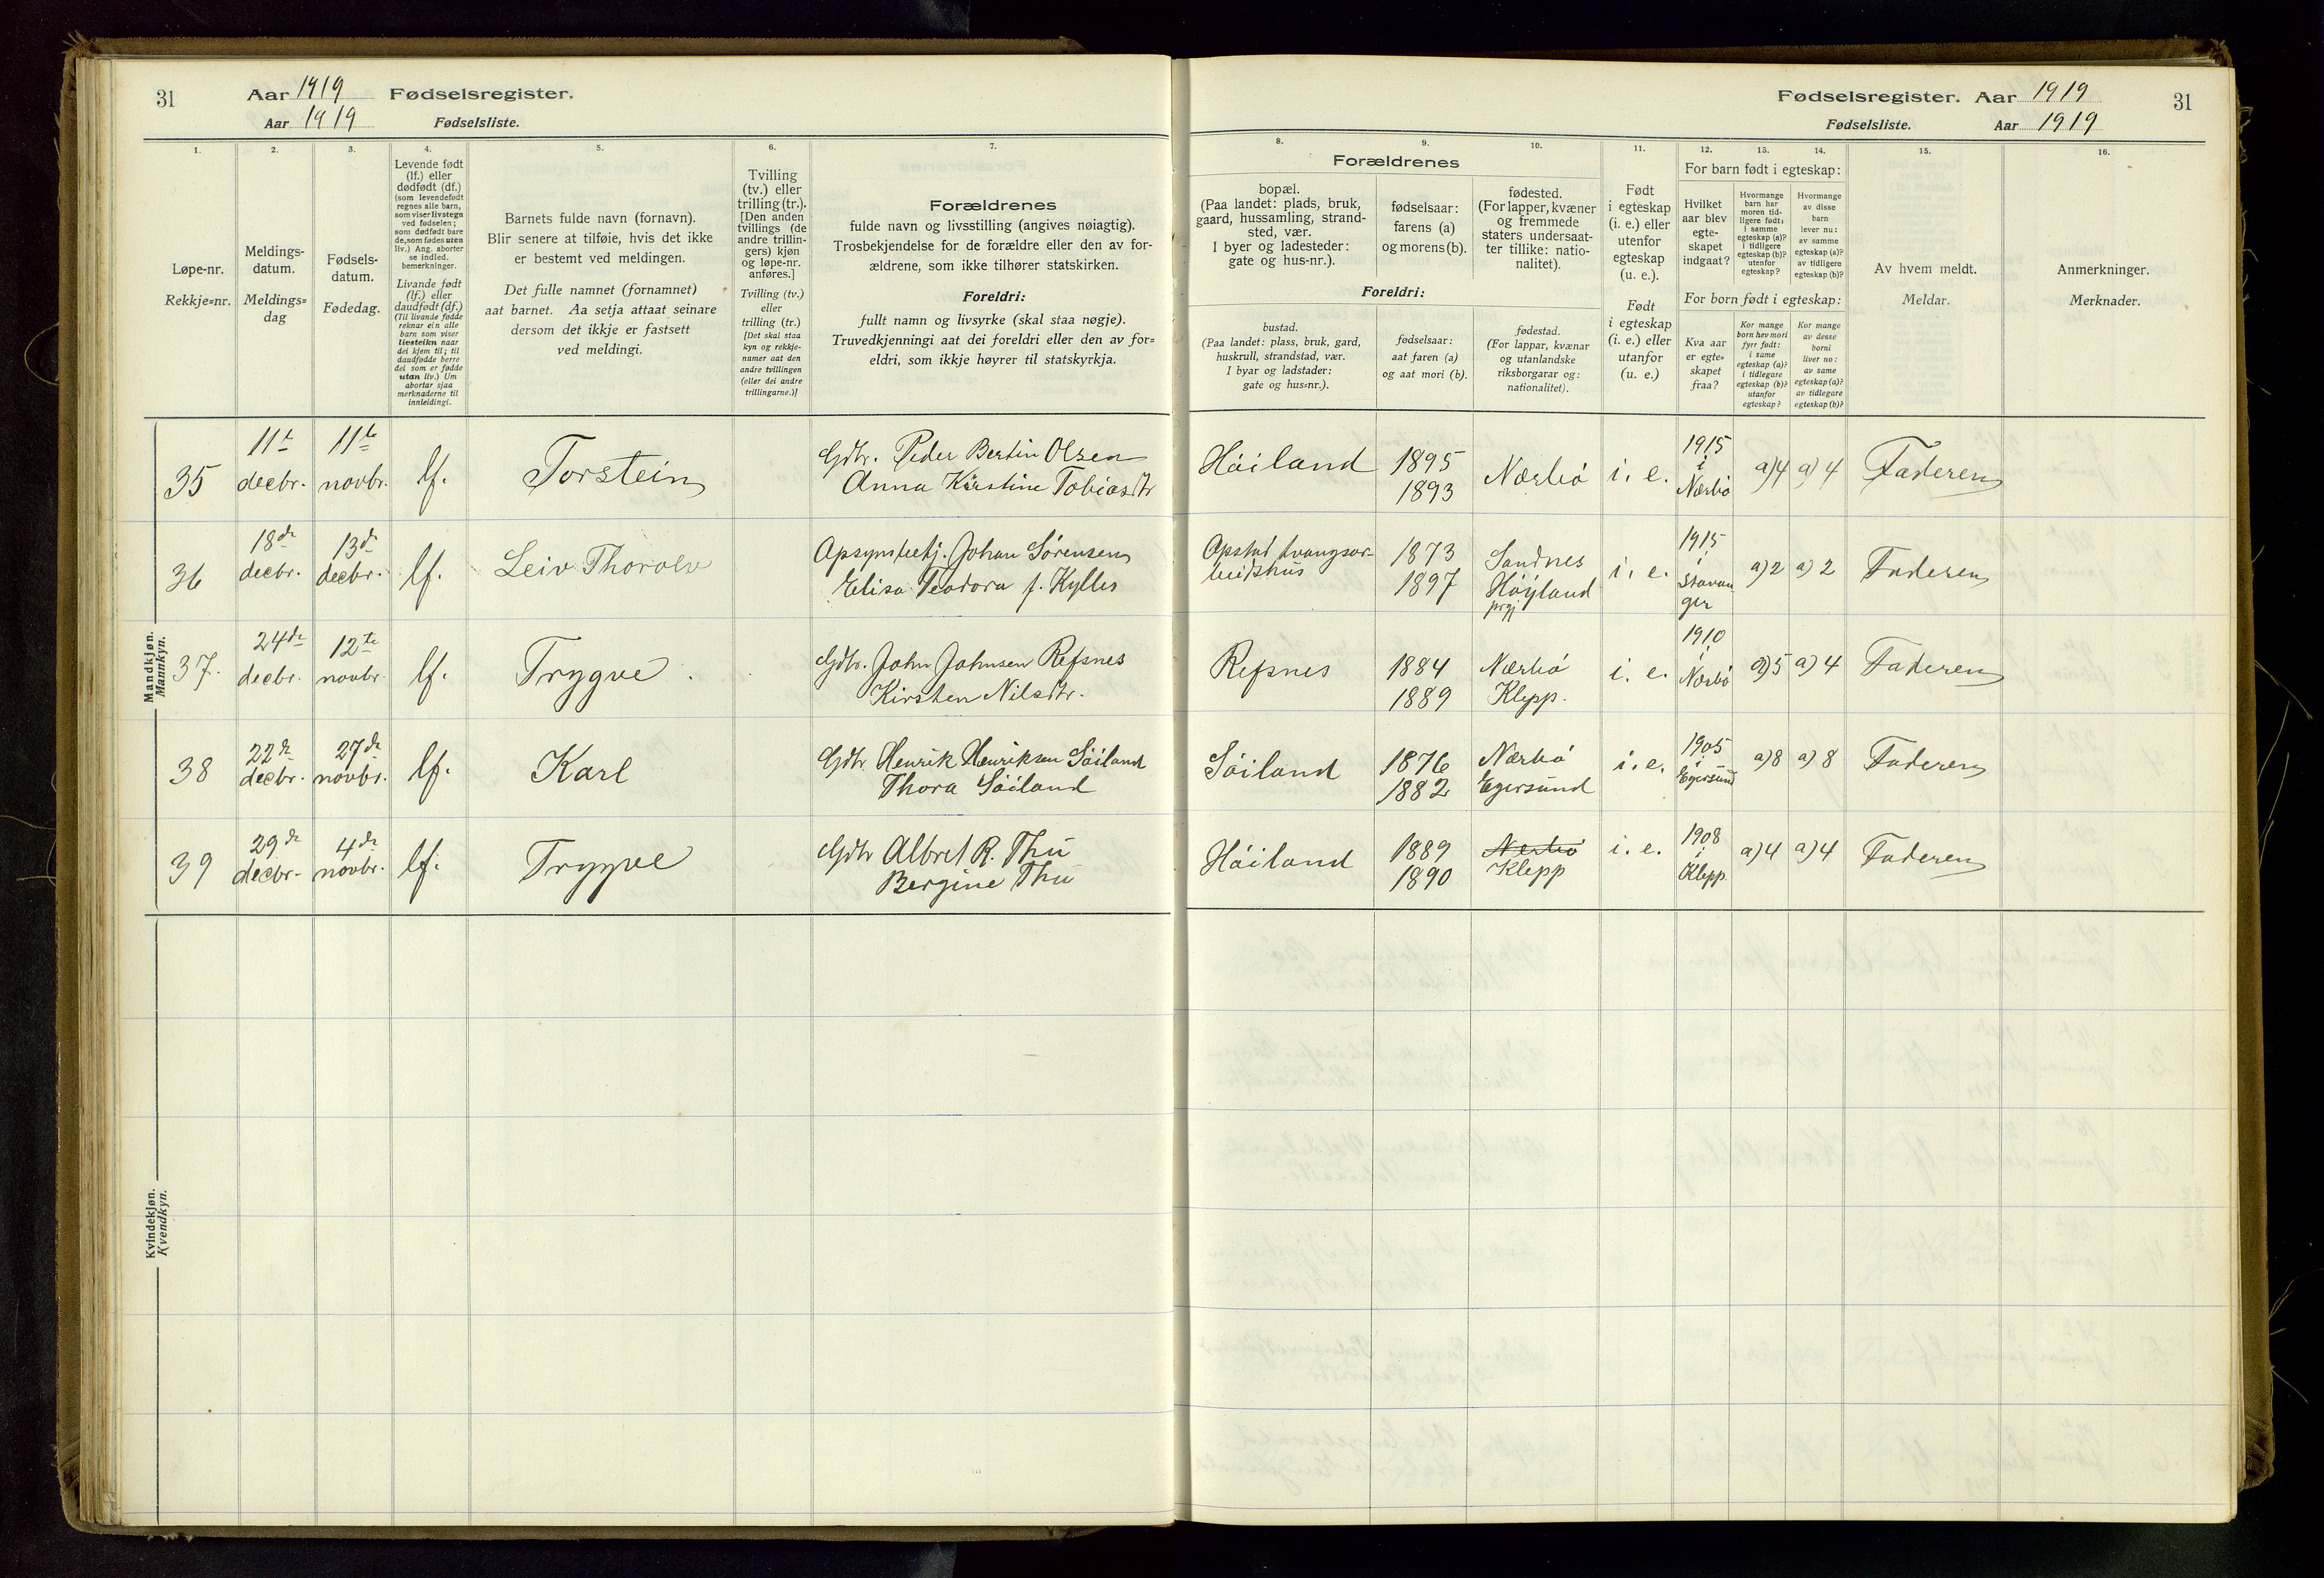 31
Aar 1919 Fødselsregister.
Aar 1919 Fødselsliste.
1.
Løpe-nr.
Rekkje-nr.
2.
Meldings-
datum.
Meldings-
dag
3.
Fødsels-
datum.
Fødedag.
4.
Levende født
(lf.) eller
dødfødt (df.)
(som levendefødt
regnes alle barn,
som viser livstegn
ved fødselen;
som dødfødt bare
de, som fødes uten
liv.) Ang. aborter
se indled.
bemerkninger.
Livande født
(lf.) eller
daudfødt (df.)
(Til livande fødde
reknar ein alle
barn som viser
livsteikn naar
dei kjem til; til
daudfødde berre
dei som er fødde
utan liv.) Um
abortar sjaa
merknaderne til
innleidingi.
5.
Barnets fulde navn (fornavn).
Blir senere at tilføie, hvis det ikke
er bestemt ved meldingen.
Det fulle namnet (fornamnet)
aat barnet. Aa setja attaat seinare
dersom det ikkje er fastsett
ved meldingi.
6.
Tvilling
(tv.) eller
trilling (tr.).
[Den anden
tvillings (de
andre trillin-
gers) kjøn
og løpe-nr.
anføres.]
Tvilling (tv.)
eller
trilling (tr.)
[Det skal staa
kyn og rekkje-
numer aat den
andre tvillingen
(eller dei andre
trillingarne.)]
7.
Forældrenes
fulde navn og livsstilling (angives nøiagtig).
Trosbekjendelse for de forældre eller den av for-
ældrene, som ikke tilhører statskirken.
Foreldri:
fullt namn og livsyrke (skal staa nøgje).
Truvedkjenningi aat dei foreldri eller den av for-
eldri, som ikkje høyrer til statskyrkja.
Mandkjøn.
Mannkyn.
35 11te decbr. 11te novbr. lf. Torstein
Gdbr. Peder Bertin Olsen
Anna Kirstine Tobiasdtr
36 18de decbr. 13de decbr. lf. Leiv Thorolv
Opsynsbetj. Johan Sørensen
Elisa Teodora f. Kylles
37. 24de decbr. 12te novbr. lf. Trygve.
Gdbr. John Johnsen Refsnes
Kirsten Nilsdtr.
38 22de decbr. 27de novbr. lf. Karl
Gdbr. Henrik Henriksen Søiland
Thora Søiland
39 29de decbr. 4de novbr. lf. Trygve
Gdbr Albret R. Thu
Bergine Thu
Kvindekjøn.
Kvendkyn.
Fødselsregister. Aar 1919
31
Fødselsliste. Aar 1919
Forældrenes
8.
bopæl.
(Paa landet: plads, bruk,
gaard, hussamling, strand-
sted, vær.
I byer og ladesteder:
gate og hus-nr.).
9.
fødselsaar:
farens (a)
og morens (b).
10.
fødested.
(For lapper, kvæner
og fremmede
staters undersaat-
ter tillike: natio-
nalitet).
Foreldri:
bustad.
(Paa landet: plass, bruk, gard,
huskrull, strandstad, vær.
I byar og ladstader:
gate og hus-nr.).
fødselsaar:
aat faren (a)
og aat mori (b).
fødestad.
(For lappar, kvænar
og utanlandske
riksborgarar og:
nationalitet).
11.
Født
i egteskap
(i. e.) eller
utenfor
egteskap
(u. e.).
Født
i egteskap
(i. e.) eller
utanfor
egteskap
(u. e.)
12. 13. 14.
For barn født i egteskap:
Hvilket
aar blev
egte-
skapet
indgaat?
Hvormange
barn har
moren tid-
ligere født:
i samme
egteskap (a)?
i tidligere
egteskap (b)?
utenfor
egteskap?
Hvormange
av disse
barn
lever nu:
av samme
egteskap (a)?
av tidligere
egteskap (b)?
For born født i egteskap:
Kva aar
er egte-
skapet
fraa?
Kor mange
born hev mori
fyrr født:
i same
egteskap (a)?
i tidlegare
egteskap (b)?
utanfor
egteskap?
Kor mange
av desse
borni
liver no:
av same
egteskap (a)?
av tidlegare
egteskap (b)?
15.
Av hvem meldt.
Meldar.
16.
Anmerkninger.
Merknader.
Høiland 1895 1893 Nærbø i. e. 1915 i Nærbø a)4 a)4 Faderen
Opstad tvangsar-
beidshus 1873 1897 Sandnes Höyland prgj i. e. 1915 i Stavanger a)2 a)2 Faderen
Refsnes 1884 1889 Nærbø Klepp. i. e. 1910 i Nærbø a)5 a)4 Faderen
Søiland 1876 1882 Nærbø Egersund i. e. 1905 i Egersund a)8 a)8 Faderen
Høiland 1889 1890 Nærbø Klepp i. e. 1908 i Klepp. a)4 a)4 Faderen